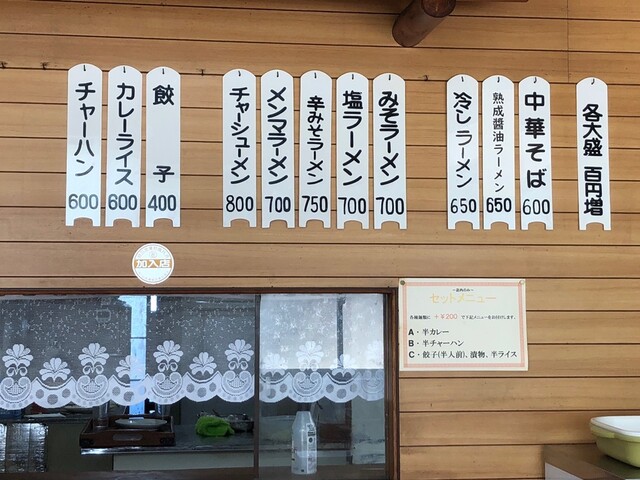 各大盛 百円増
中華そば 600
熟成醬油ラーメン 650
冷しラーメン 650
みそラーメン 700
塩ラーメン 700
辛みそラーメン 750
メンマラーメン 700
チャーシューメン 800
餃子 400
カレーライス 600
チャーハン 600
加入店
～店内のみ～
セットメニュー
各麺類に +￥200 で下記メニューをお付けします。
A・半カレー
B・半チャーハン
C・餃子(半人前)、漬物、半ライス